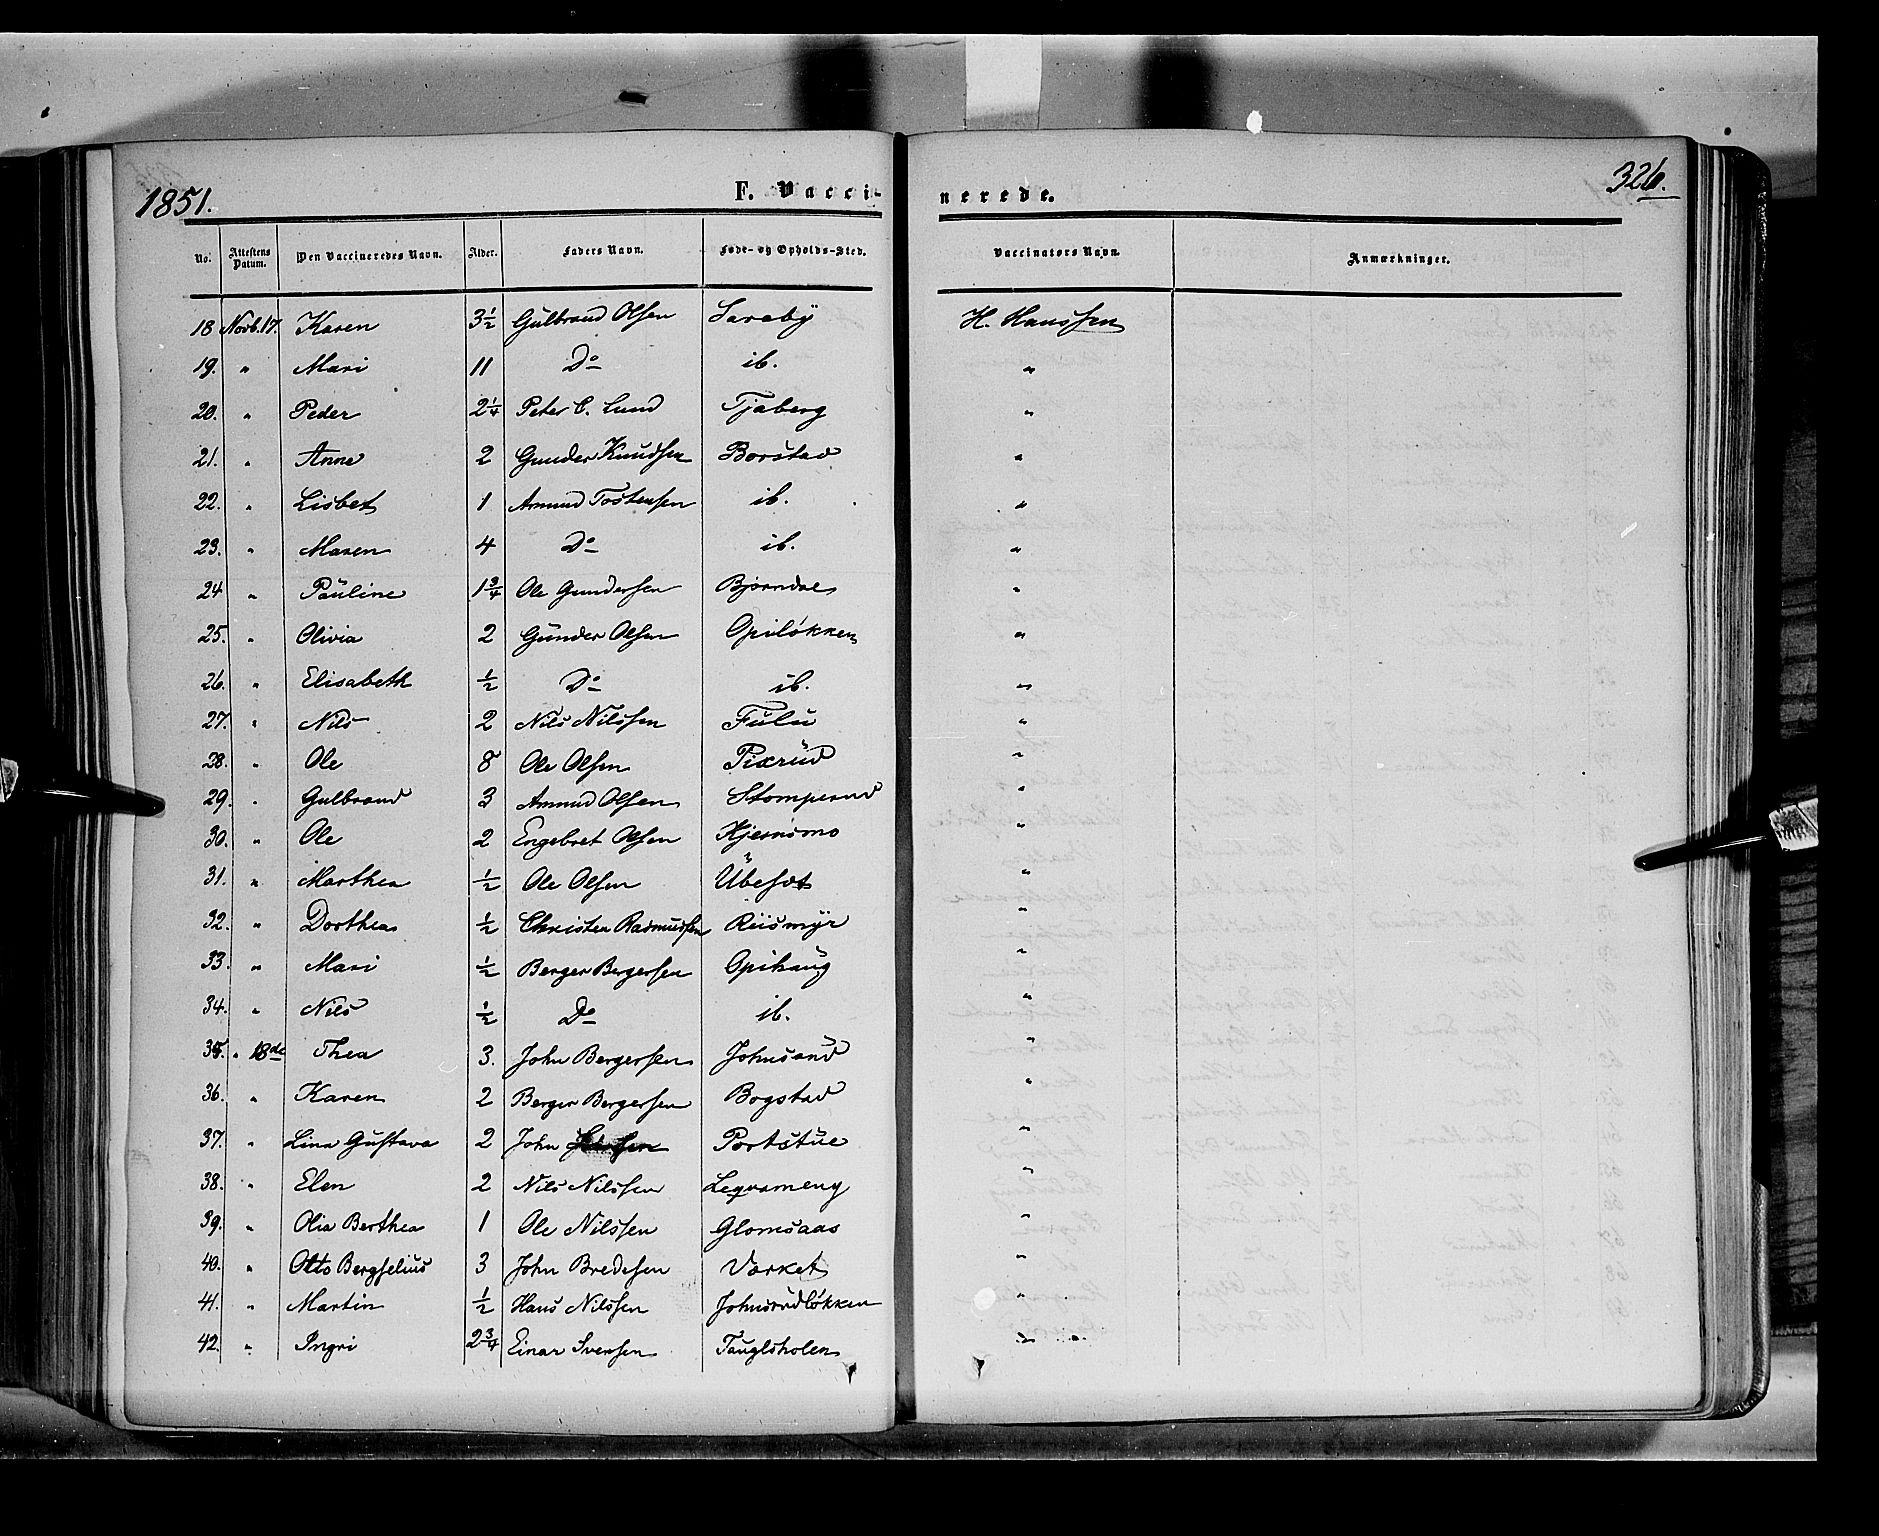 1851. F. Vacci- nerede. 326.
No. Attestens Datum. Den Vaccineredes Navn. Alder. Faders Navn. Føde- og Opholds-Sted. Vaccinators Navn. Anmærkninger.
18 Novb. 17. Karen 3½ Gulbrand Olsen Saraby H. Hanssen
19. " Mari 11 Do ib. "
20. " Peder 2¼ Peter C. Lund Tjaberg "
21. " Anne 2 Gunder Knudsen Borstad "
22. " Lisbet 1 Amund Tostensen ib. "
23. " Maren 4 Do ib. "
24 " Pauline 1¾ Ole Gundersen Bjørndal "
25. " Olivia 2 Gunder Olsen Opiløkken "
26. " Elisabeth ½ Do ib. "
27. " Nils 2 Nils Nilssen Fulu "
28. " Ole 8 Ole Olsen Pixrud "
29. " Gulbrand 3 Amund Olsen Stomperud "
30. " Ole 2 Engebret Olsen Kjernsmo "
31. " Marthea ½ Ole Olsen "
32. " Dorthea ½ Christen Rasmussen Riismyr "
33. " Mari ½ Berger Bergersen Opihaug "
34. " Nils ½ Do ib. "
35. " 18de Thea 3. John Bergersen Johnsrud "
36. " Karen 2 Berger Bergersen Bogstad "
37. " Lina Gustava 2 John Portstue "
38. " Elen 2 Nils Nilssen Legvameng "
39. " Olia Berthea 1 Ole Nilssen Glomsaas "
40. " Otto Bergselius 3 John Bredesen Værket "
41. " Martin ½ Hans Nilssen Johnsrudløkken "
42. " Ingri 2¾ Einar Iversen Fauglsholen "